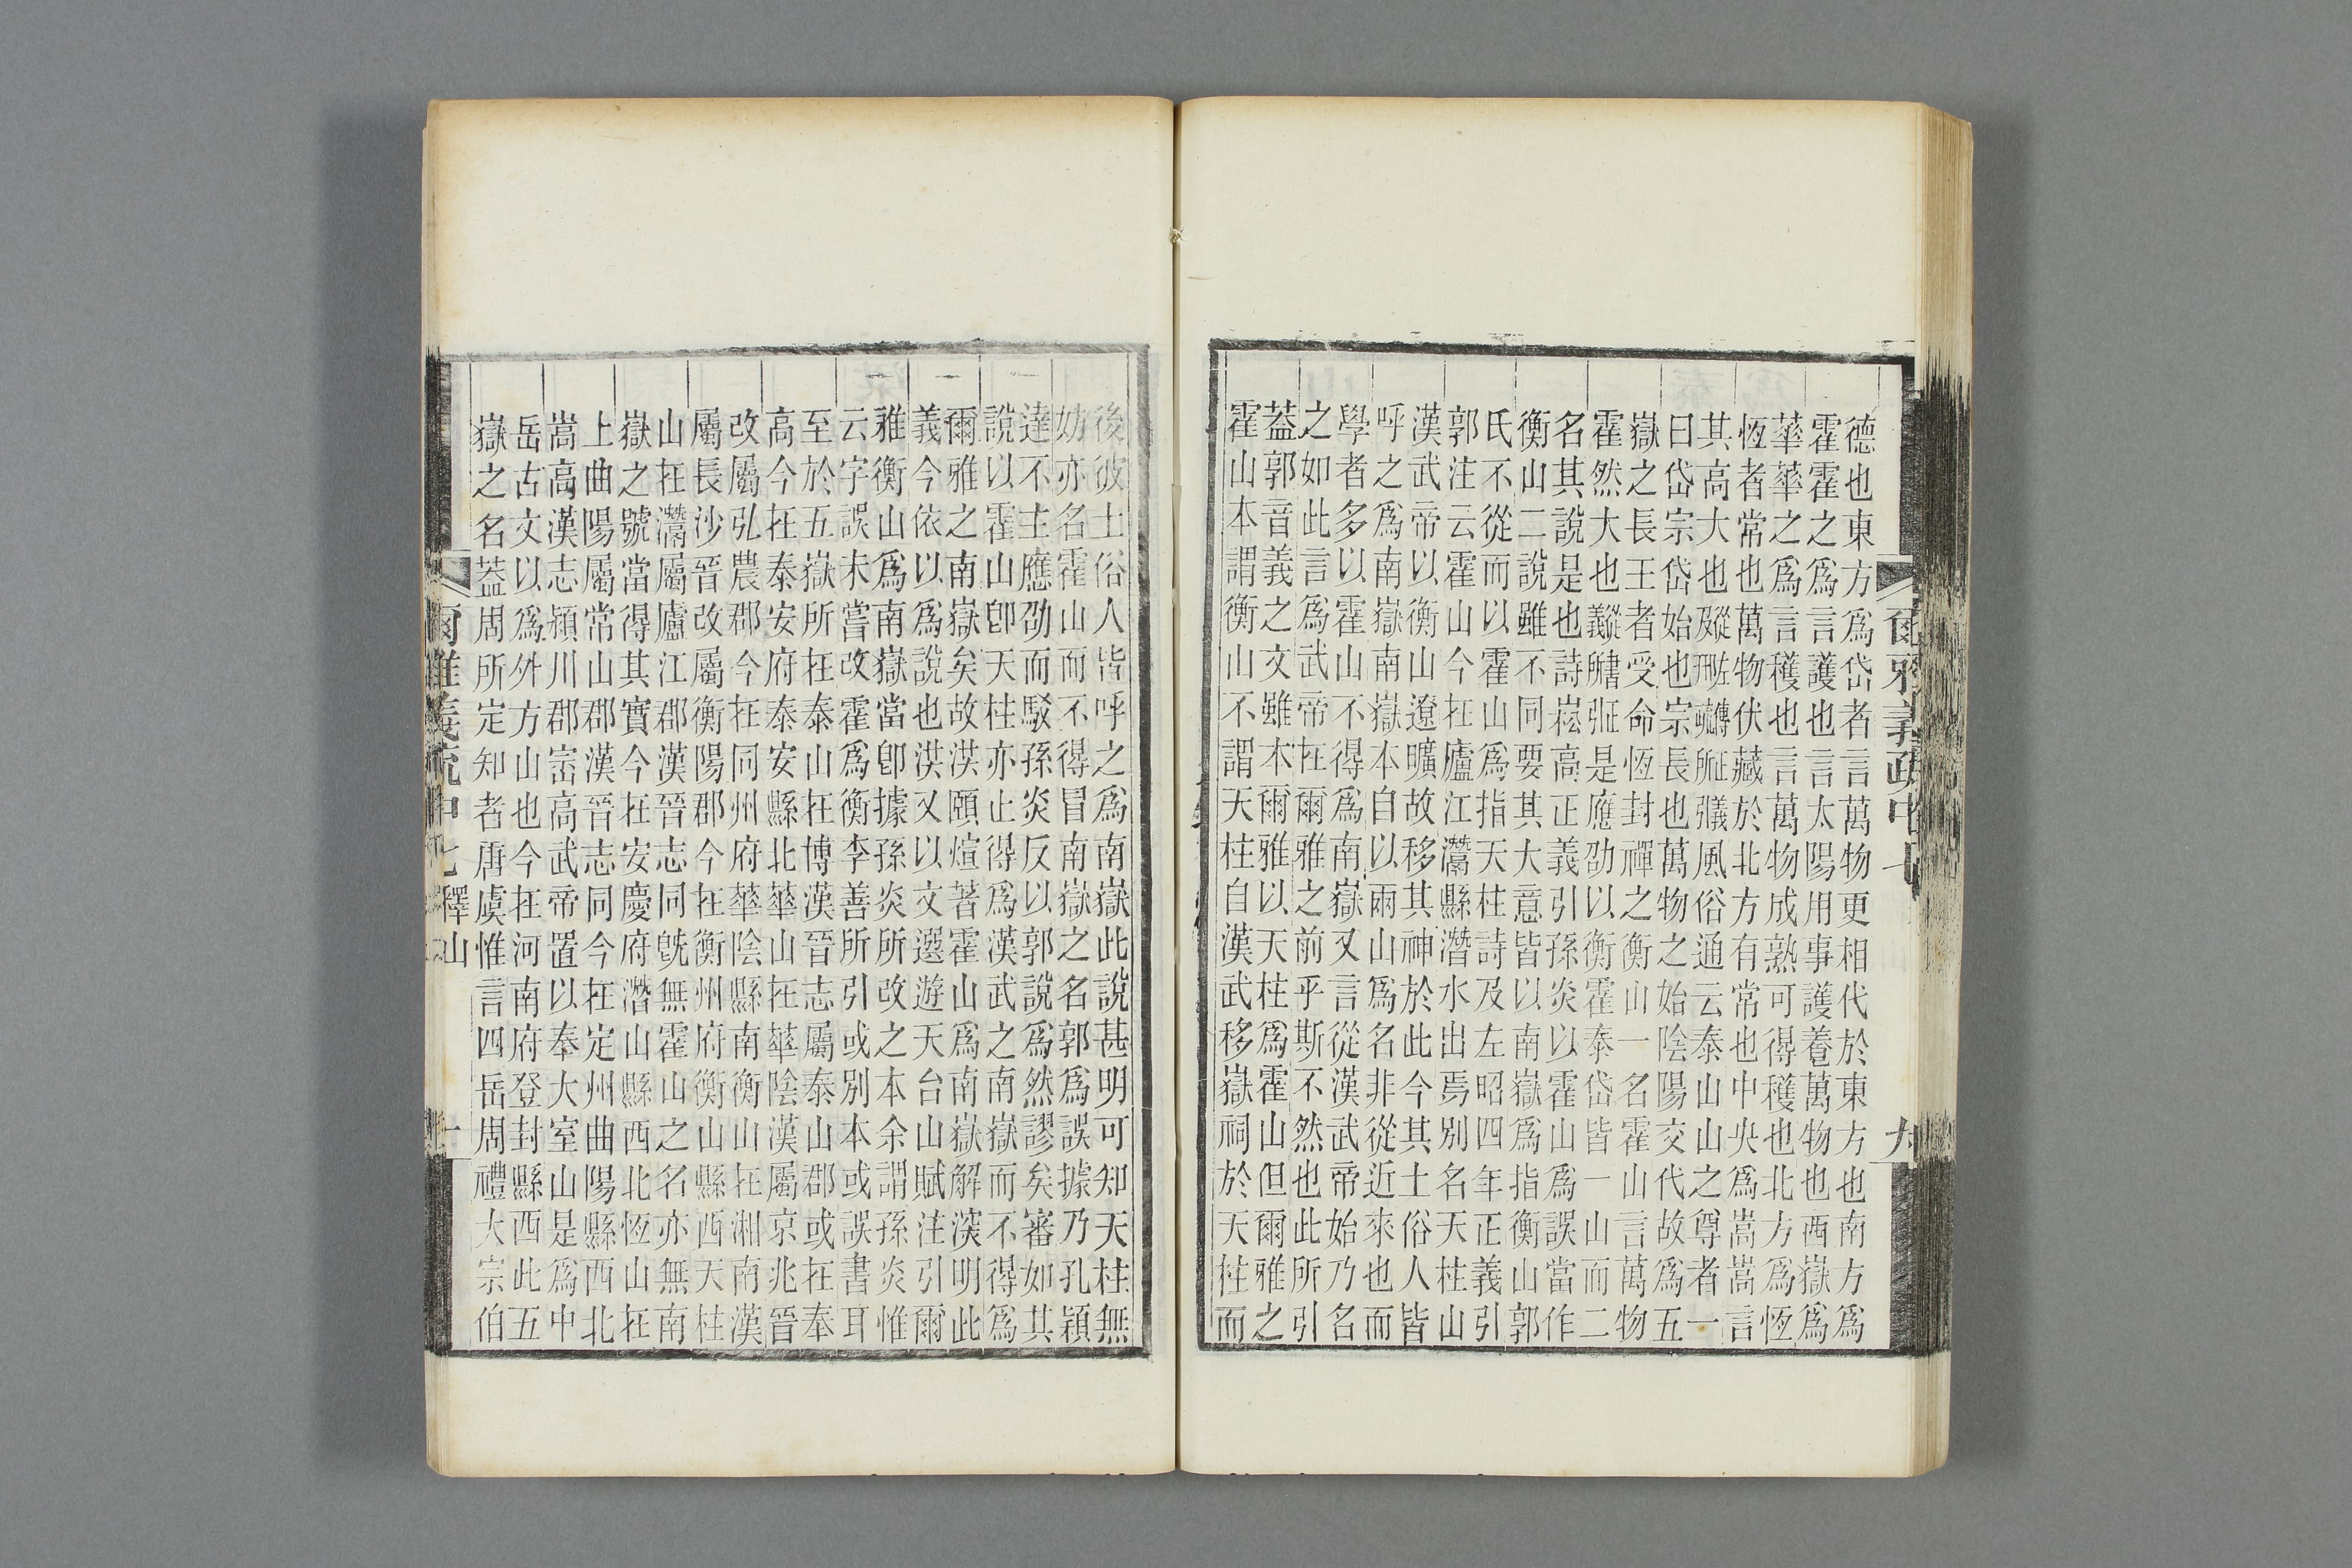 爾雅義疏中七 九
德也東方爲岱者言萬物更相代於東方也南方爲
霍霍之爲言護也言太陽用事護養萬物也西嶽爲
華華之爲言穫也言萬物成熟可得穫也北方爲恆
恆者常也萬物伏藏於北方有常也中央爲嵩嵩言
其高大也風俗通云泰山山之尊者一
曰岱宗岱始也宗長也萬物之始陰陽交代故爲五
嶽之長王者受命恆封禪之衡山一名霍山言萬物
霍然大也是應劭以衡霍泰岱皆一山而二
名其說是也詩崧高正義引孫炎以霍山爲誤當作
衡山二說雖不同要其大意皆以南嶽爲指衡山郭
氏不從而以霍山爲指天柱詩及左昭四年正義引
郭注云霍山今在廬江灊縣潛水出焉別名天柱山
漢武帝以衡山遼曠故移其神於此今其土俗人皆
呼之爲南嶽南嶽本自以兩山爲名非從近來也而
學者多以霍山不得爲南嶽又言從漢武帝始乃名
之如此言爲武帝在爾雅之前乎斯不然也此所引
葢郭音義之文雖本爾雅以天柱爲霍山但爾雅之
霍山本謂衡山不謂天柱自漢武移嶽祠於天柱而
後彼土俗人皆呼之爲南嶽此說甚明可知天柱無
妨亦名霍山而不得冒南嶽之名郭爲誤據乃孔穎
達不主應劭而駁孫炎反以郭說爲然謬矣審如其
說以霍山卽天柱亦止得爲漢武之南嶽而不得爲
爾雅之南嶽矣故洪頤煊著霍山爲南嶽解深明此
義今依以爲說也洪又以文選遊天台山賦注引爾
雅衡山爲南嶽當卽據孫炎所改之本余謂孫炎惟
云字誤未嘗改霍爲衡李善所引或別本或誤書耳
至於五嶽所在泰山在博漢晉志屬泰山郡或在奉
高今在泰安府泰安縣北華山在華陰漢屬京兆晉
改屬弘農郡今在同州府華陰縣南衡山在湘南漢
屬長沙晉改屬衡陽郡今在衡州府衡山縣西天柱
山在灊屬廬江郡漢晉志同旣無霍山之名亦無南
嶽之號當得其實今在安慶府潛山縣西北恆山在
上曲陽屬常山郡漢晉志同今在定州曲陽縣西北
嵩高漢志潁川郡崈高武帝置以奉大室山是爲中
岳古文以爲外方山也今在河南府登封縣西此五
嶽之名葢周所定知者唐虞惟言四岳周禮大宗伯
爾雅義疏中七 釋山